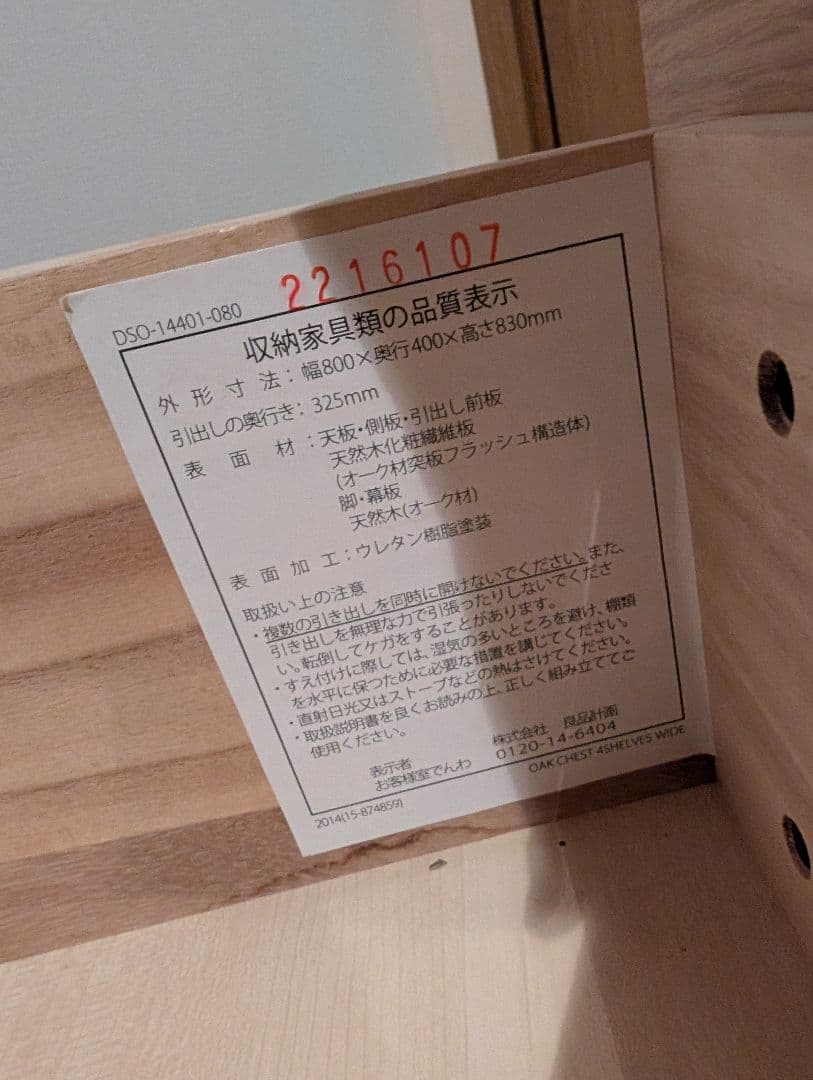 2216107
DSO-14401-080
収納家具類の品質表示
外形寸法：幅800×奥行400×高さ830mm
引出しの奥行き：325mm
表面材：天板・側板・引出し前板
天然木化粧繊維板
(オーク材突板フラッシュ構造体)
脚・幕板
天然木(オーク材)
表面加工：ウレタン樹脂塗装
取扱い上の注意
・複数の引き出しを同時に開けないでください。また、
引き出しを無理な力で引張ったりしないでくださ
い。転倒してケガをすることがあります。
・すえ付けに際しては、湿気の多いところを避け、棚類
を水平に保つために必要な措置を講じてください。
・直射日光又はストーブなどの熱はさけてください。
・取扱説明書を良くお読みの上、正しく組み立ててご
使用ください。
表示者 株式会社 良品計画
お客様室でんわ 0120-14-6404
OAK CHEST 4SHELVES WIDE
2014(15-874859)